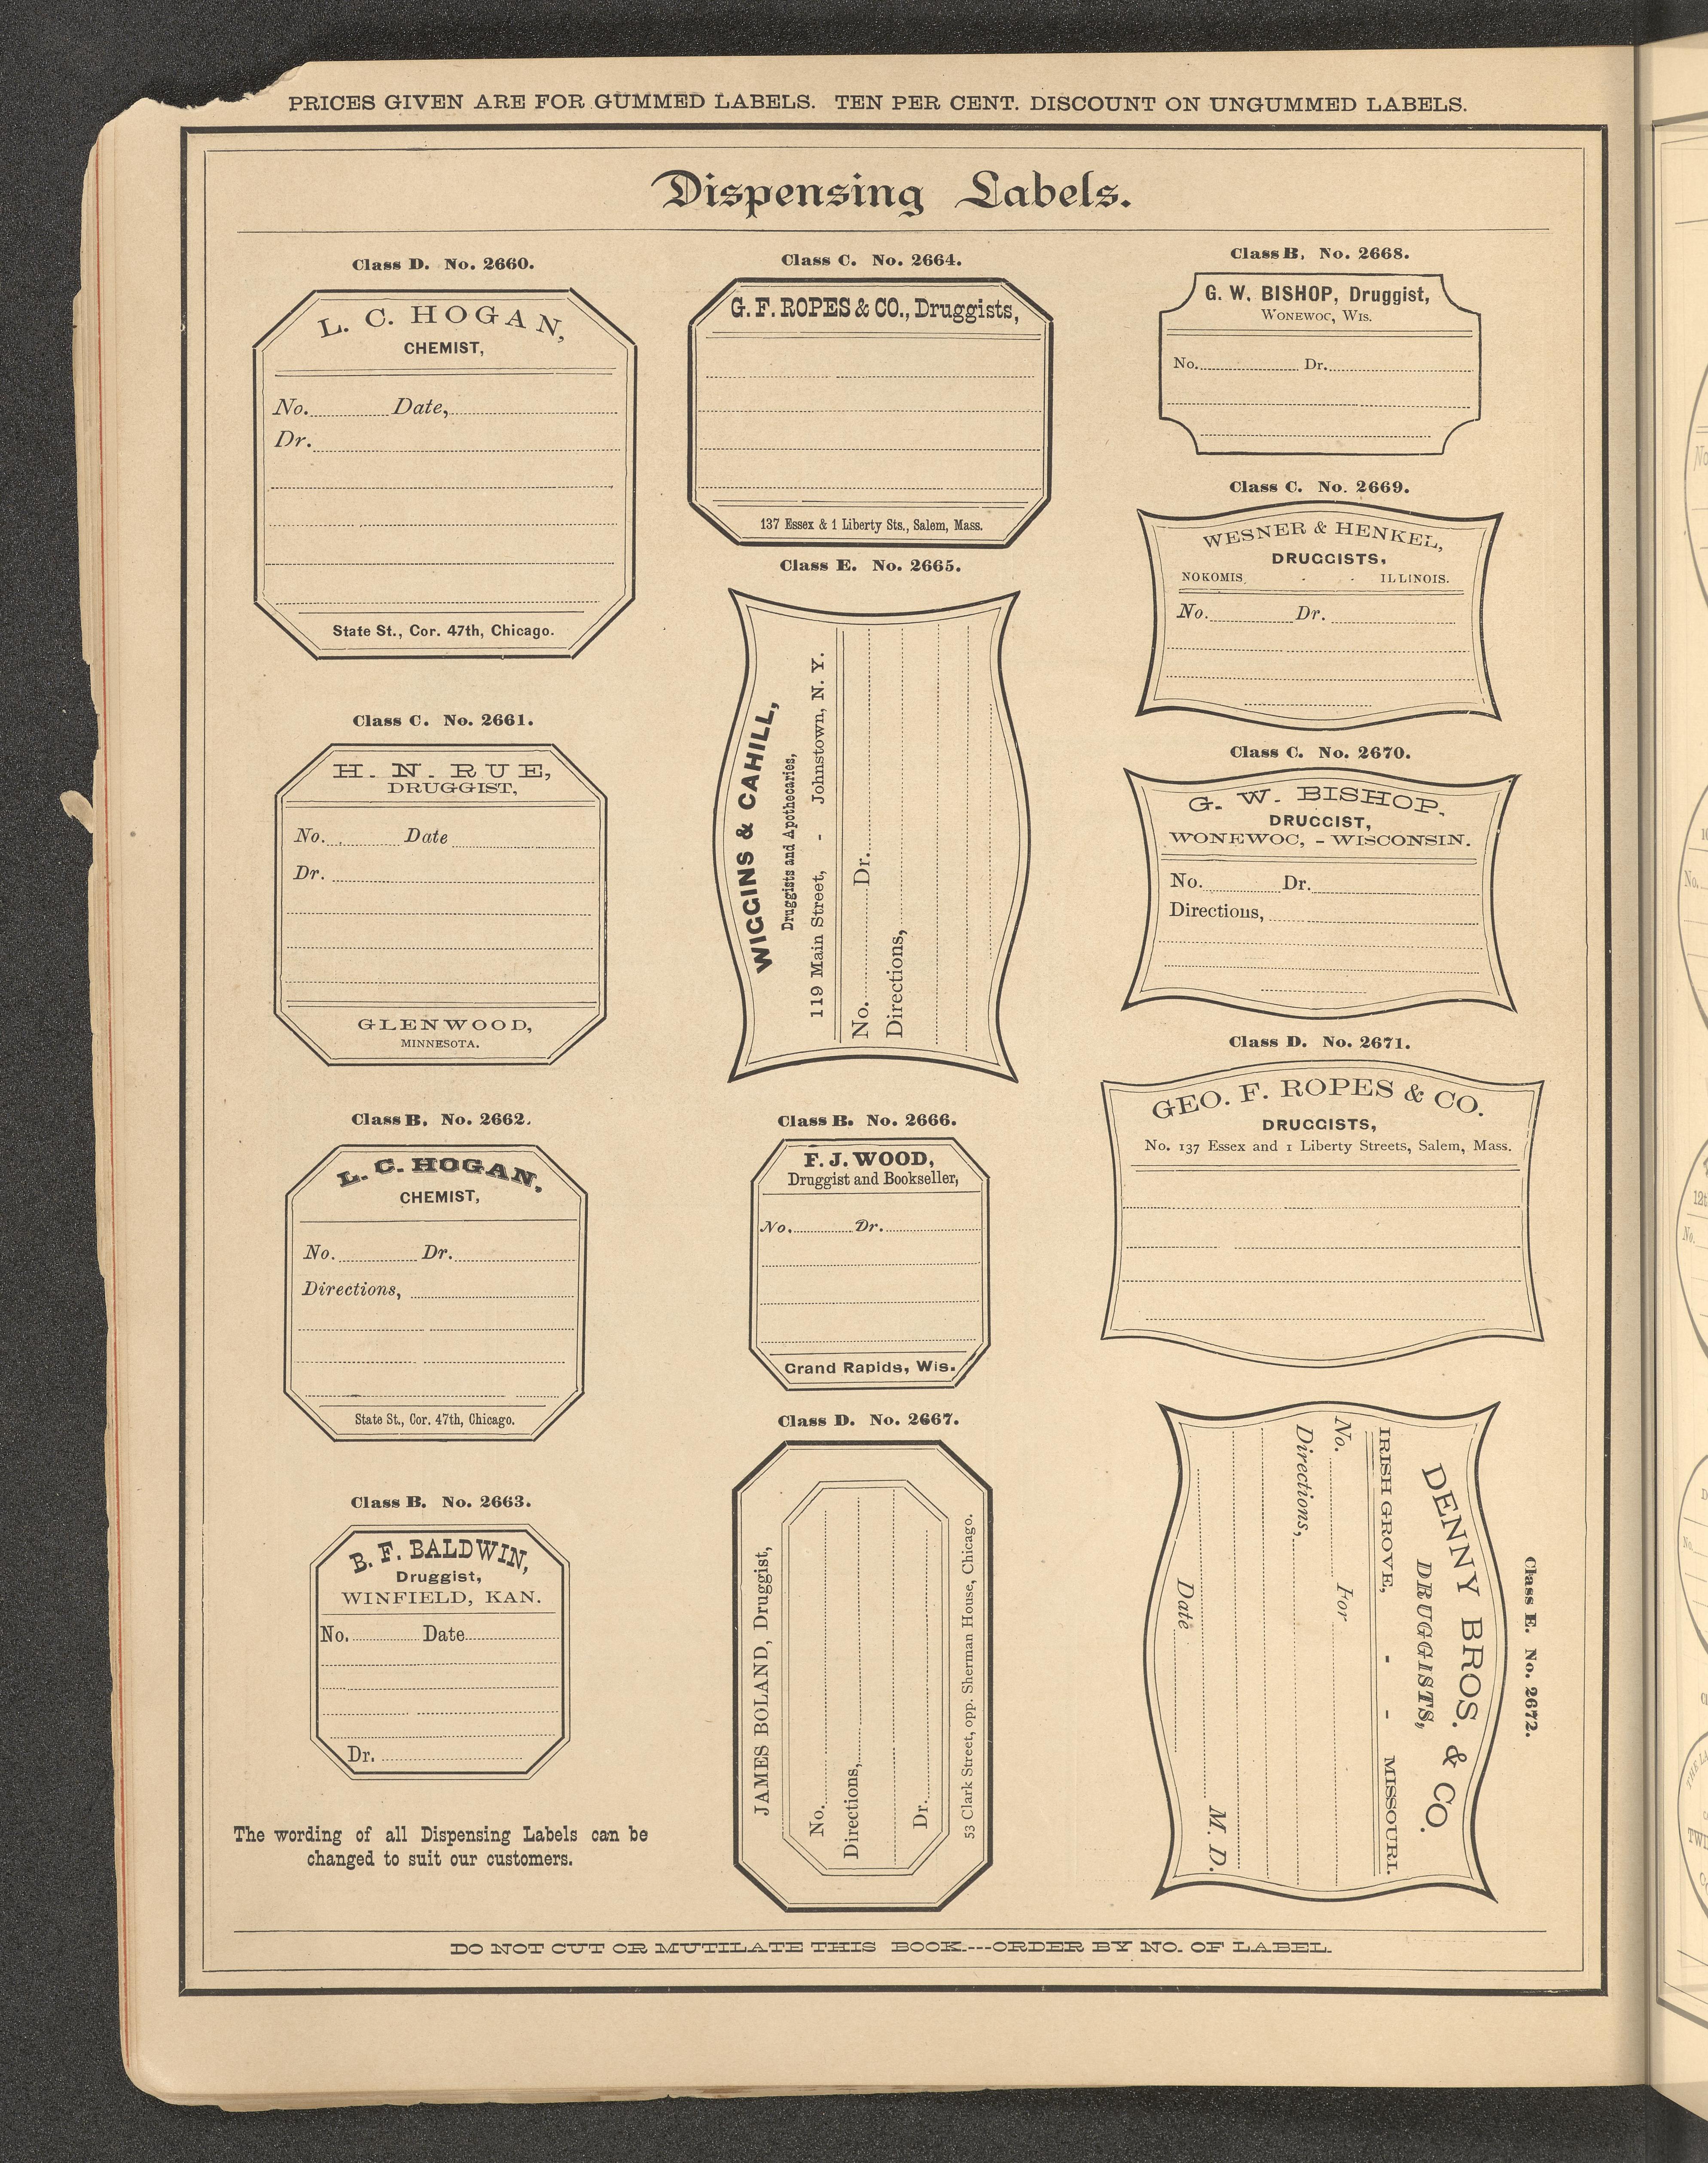 PRICES GIVEN ARE FOR GUMMED LABELS. TEN PER CENT. DISCOUNT ON UNGUMMED LABELS.
Dispensing Labels.
Class D. No. 2660.
L. C. HOGAN,
CHEMIST,
No. Date,
Dr.
State St., Cor. 47th, Chicago.
Class C. No. 2661.
H. N. RUE,
DRUGGIST,
No. Date
Dr.
GLENWOOD,
MINNESOTA.
Class B. No. 2662.
L. C. HOGAN.
CHEMIST,
No. Dr.
Directions,
State St., Cor. 47th, Chicago.
Class B. No. 2663.
B. F. BALDWIN,
Druggist,
WINFIELD, KAN.
No. Date
Dr.
The wording of all Dispensing Labels can be
changed to suit our customers.
Class C. No. 2664.
G. F. ROPES & CO., Druggists,
137 Essex & 1 Liberty Sts., Salem, Mass.
Class E. No. 2665.
WIGGINS & CAHILL,
Druggists and Apothecaries,
119 Main Street, - Johnstown, N. Y.
No. Dr.
Directions,
Class B. No. 2666.
F. J. WOOD,
Druggist and Bookseller,
No. Dr.
Grand Rapids, Wis.
Class D. No. 2667.
JAMES BOLAND, Druggist,
No.
Directions,
Dr.
53 Clark Street, opp. Sherman House, Chicago.
Class B, No. 2668.
G. W. BISHOP, Druggist,
WONEWOC, WIS.
No. Dr.
Class C. No. 2669.
WESNER & HENKEL,
DRUGGISTS,
NOKOMIS - - ILLINOIS.
No. Dr.
Class C. No. 2670.
G. W. BISHOP.
DRUGGIST,
WONEWOC, - WISCONSIN.
No. Dr.
Directions,
Class D. No. 2671.
GEO. F. ROPES & CO.
DRUGGISTS,
No. 137 Essex and 1 Liberty Streets, Salem, Mass.
Class E. No. 2672.
DENNY BROS. & CO.
DRUGGISTS,
IRISH GROVE, - - MISSOURI.
No. For
Directions,
M. D.
Date
DO NOT CUT OR MUTILATE THIS BOOK.---ORDER BY NO. OF LABEL.